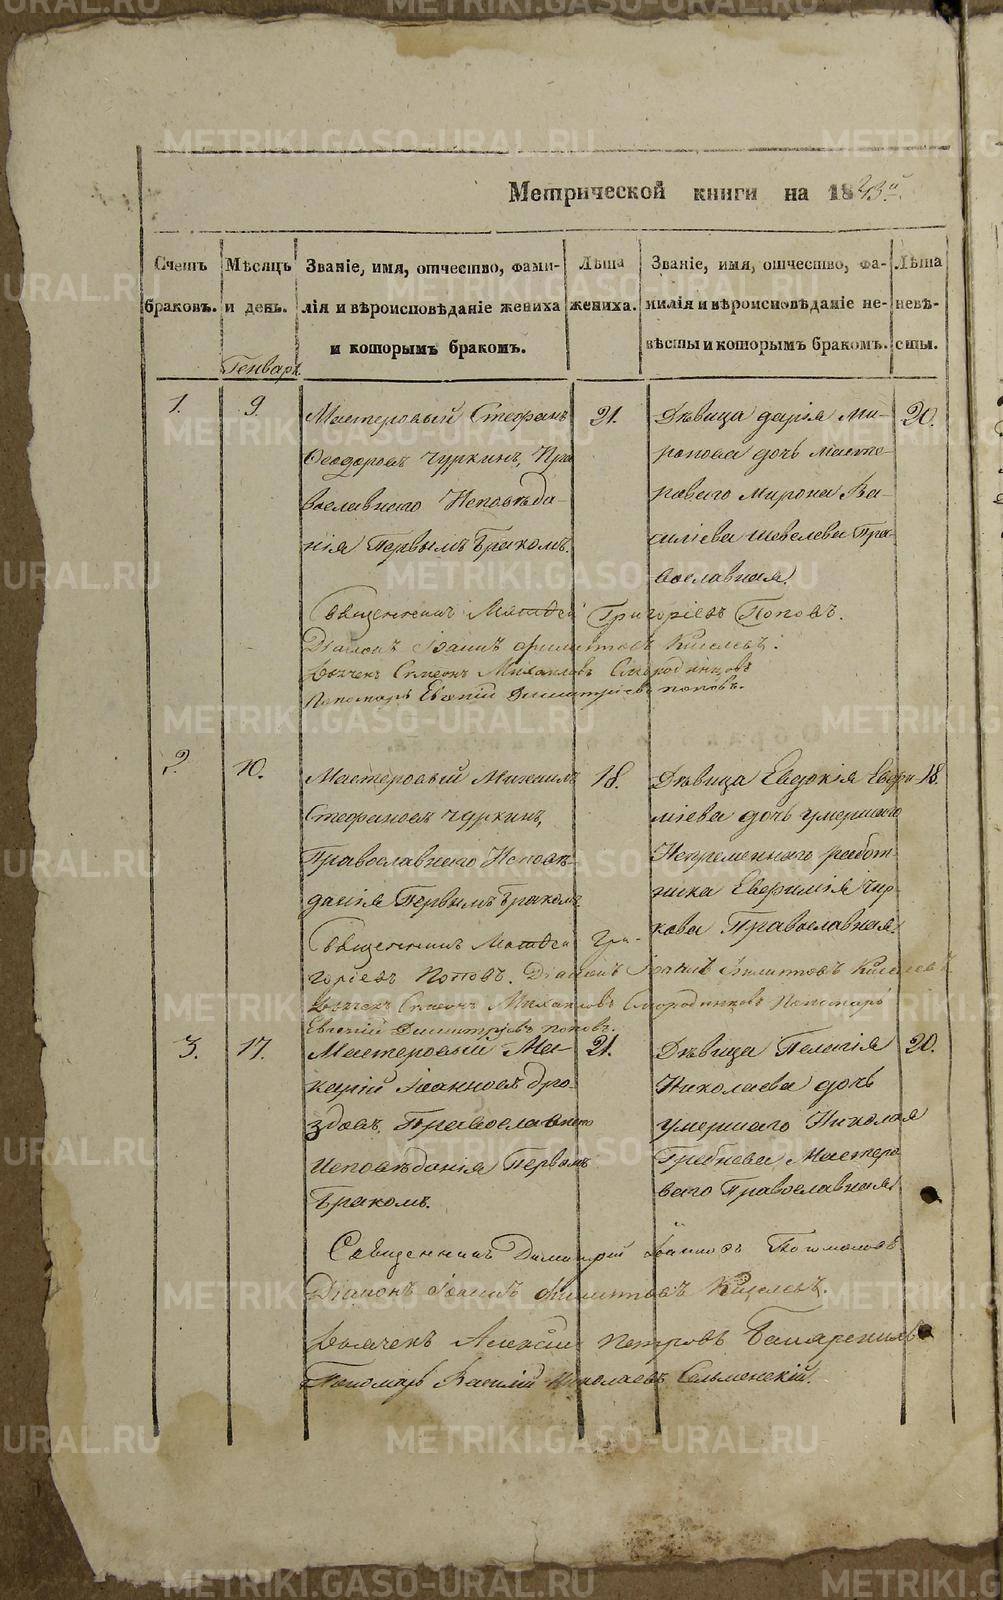 Метрической книги на 1843й.
Счетъ браковъ.
Мѣсяцъ и день.
Званіе, имя, отчество, фами-
лія и вѣроисповѣданіе жениха
и которымъ бракомъ.
Лѣта жениха.
Званіе, имя, отчество, фа-
милія и вѣроисповѣданіе не-
вѣсты и которымъ бракомъ.
Лѣта невѣ-
сты.
Генварь
1.
9.
Мастеровый Стефанъ
Феодоровъ Чуркинъ, Пра
вославнаго Исповѣда-
нія Первымъ Бракомъ.
21.
Дѣвица дарія Ми-
ронова дочь масте-
роваго Мирона Ва-
силіева Шевелева Пра-
вославная.
20.
Священникъ Матѳей Григоріевъ Поповъ.
Діаконъ Іоаннъ Филиповъ Киселевъ.
Дьячекъ Симеонъ Михаиловъ Смородинцовъ
Пономарь Евгеній Димитріевъ поповъ.
2.
10.
Мастеровый Михаилъ
Стефановъ Чуркинъ,
Православнаго Исповѣ-
данія Первымъ Бракомъ
18.
Дѣвица Евдокія Евфи-
міева дочь умершаго
Непременнаго работ-
ника Евфимія Чир-
кова Православная.
18.
Священникъ Матѳей Гри-
горіевъ Поповъ. Діаконъ Іоаннъ Филиповъ Киселевъ
Дьячекъ Симеонъ Михаиловъ Смородинцовъ Пономарь
Евгеній Димитріевъ поповъ.
3.
17.
Мастеровый Ма-
карій Іоанновъ Дро-
здовъ. Православнаго
Исповѣданія Первымъ
Бракомъ.
21.
Дѣвица Пелагія
Николаева дочь
умершаго Николая
Гребнева Мастеро
ваго Православная.
20.
Священникъ Димитрій Іанновъ
Діаконъ Іоаннъ Филиповъ Киселевъ.
Дьячекъ Алексій Петровъ
Пономарь Василій Николаевъ Сельменскій.
METRIKI.GASO-URAL.RU